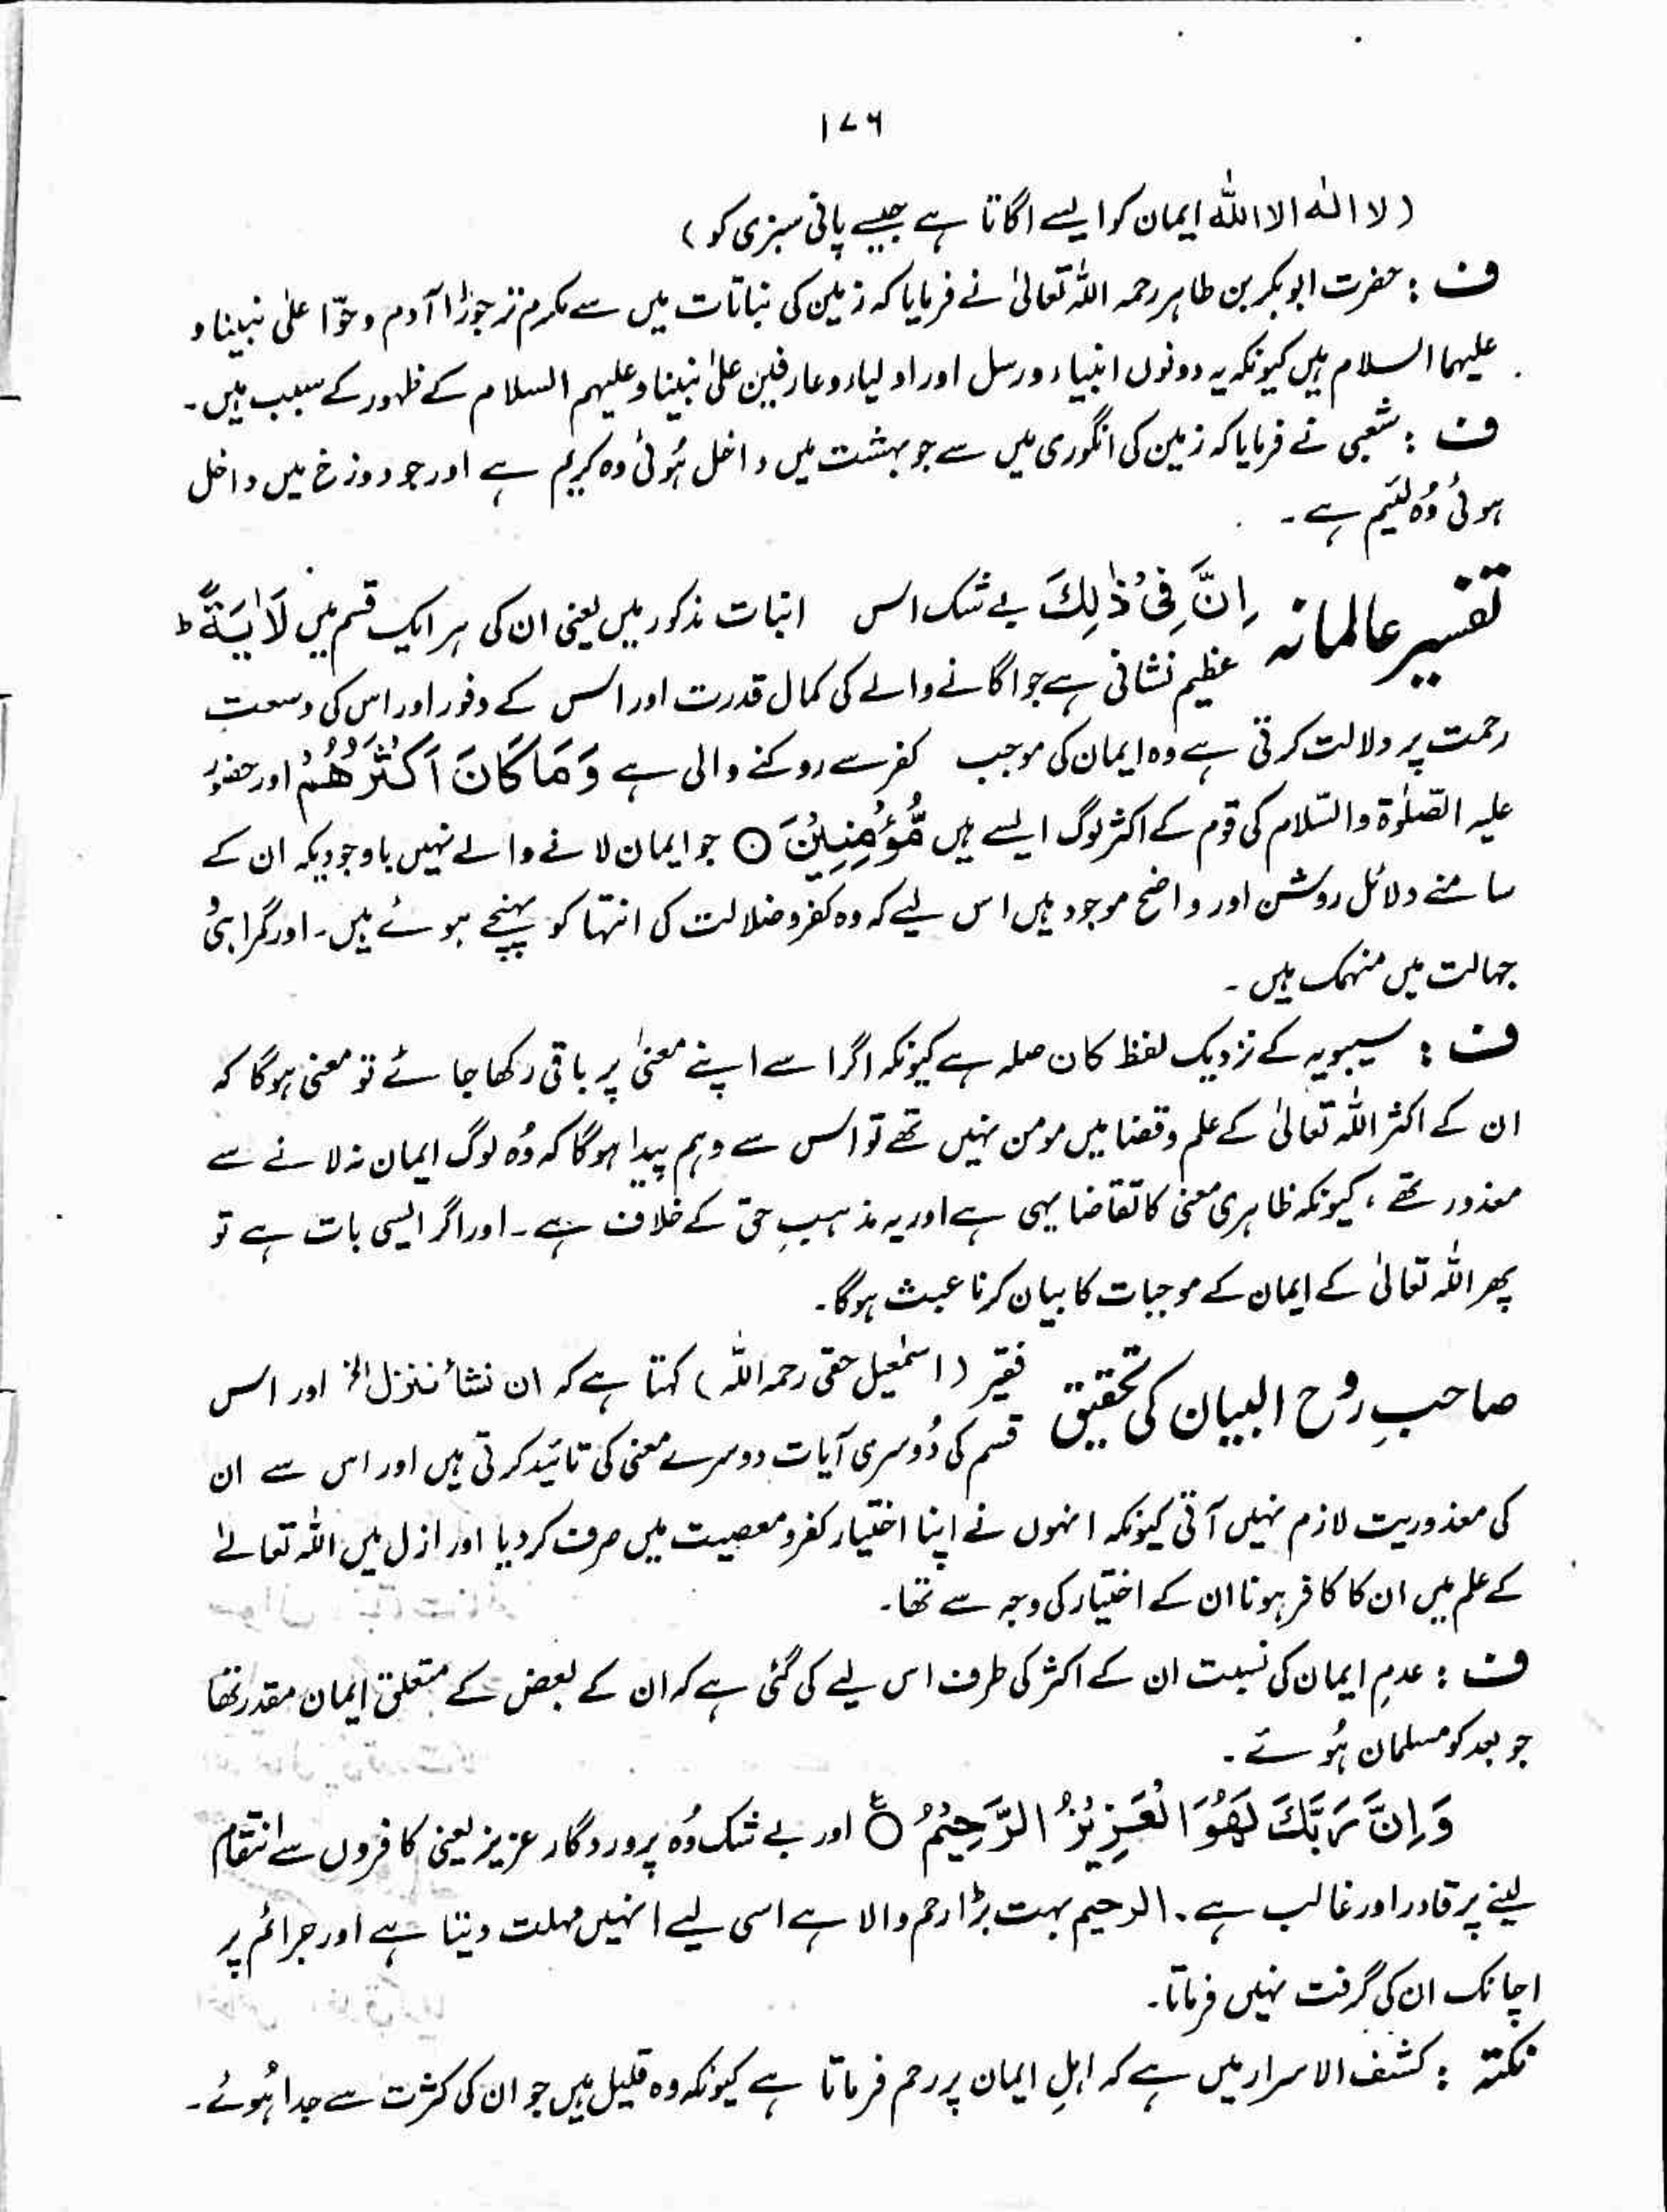 ۱۷۶
(لا الٰہ الا اللہ ایمان کو ایسے اگاتا ہے جیسے پانی سبزی کو)
ف : حضرت ابوبکر بن طاہر رحمہ اللہ تعالیٰ نے فرمایا کہ زمین کی نباتات میں سے مکرم تر جوڑا آدم و حوّا علیٰ نبینا و
علیہما السلام ہیں کیونکہ یہ دونوں انبیاء و رسل اور اولیاء و عارفین علیٰ نبینا و علیہم السلام کے ظہور کے سبب ہیں۔
ف : شعبی نے فرمایا کہ زمین کی انگوری میں سے جو بہشت میں داخل ہُوئی وہ کریم ہے اور جو دوزخ میں داخل
ہوئی وُہ لئیم ہے۔
تفسیر عالمانہ اِنَّ فِیْ ذٰلِكَ بے شک اس انبات مذکور میں یعنی ان کی ہر ایک قسم میں لَاٰیَةً ؕ
عظیم نشانی ہے جو اگانے والے کی کمال قدرت اور اس کے وفور اور اس کی وسعتِ
رحمت پر دلالت کرتی ہے وہ ایمان کی موجب کفر سے روکنے والی ہے وَمَا كَانَ اَكْثَرُهُمْ اور حضور
علیہ الصّلوٰۃ والسّلام کی قوم کے اکثر لوگ ایسے ہیں مُّؤْمِنِیْنَ ○ جو ایمان لانے والے نہیں باوجودیکہ ان کے
سامنے دلائل روشن اور واضح موجود ہیں اس لیے کہ وہ کفر و ضلالت کی انتہا کو پہنچے ہوئے ہیں۔ اور گمراہی و
جہالت میں منہمک ہیں۔
ف : سیبویہ کے نزدیک لفظ کان صلہ ہے کیونکہ اگر اسے اپنے معنیٰ پر باقی رکھا جائے تو معنی ہوگا کہ
ان کے اکثر اللہ تعالیٰ کے علم و قضا میں مومن نہیں تھے تو اس سے وہم پیدا ہوگا کہ وُہ لوگ ایمان نہ لانے سے
معذور تھے ، کیونکہ ظاہری معنی کا تقاضا یہی ہے اور یہ مذہبِ حق کے خلاف ہے۔ اور اگر ایسی بات ہے تو
پھر اللہ تعالیٰ کے ایمان کے موجبات کا بیان کرنا عبث ہوگا۔
صاحبِ روح البیان کی تحقیق فقیر (اسمٰعیل حقی رحمہ اللہ) کہتا ہے کہ ان نشأ ننزل الخ اور اس
قسم کی دُوسری آیات دوسرے معنی کی تائید کرتی ہیں اور اس سے ان
کی معذوریت لازم نہیں آتی کیونکہ انہوں نے اپنا اختیار کفر و معصیت میں صرف کر دیا اور ازل میں اللہ تعالےٰ
کے علم میں ان کا کافر ہونا ان کے اختیار کی وجہ سے تھا۔
ف : عدمِ ایمان کی نسبت ان کے اکثر کی طرف اس لیے کی گئی ہے کہ ان کے بعض کے متعلق ایمان مقدر تھا
جو بعد کو مسلمان ہُوئے۔
وَاِنَّ رَبَّكَ لَهُوَ الْعَزِیْزُ الرَّحِیْمُ ○ع اور بے شک وُہ پروردگار عزیز یعنی کافروں سے انتقام
لینے پر قادر اور غالب ہے۔ الرحیم بہت بڑا رحم والا ہے اسی لیے انہیں مہلت دیتا ہے اور جرائم پر
اچانک ان کی گرفت نہیں فرماتا۔
نکتہ : کشف الاسرار میں ہے کہ اہلِ ایمان پر رحم فرماتا ہے کیونکہ وہ قلیل ہیں جو ان کی کثرت سے جدا ہُوئے۔